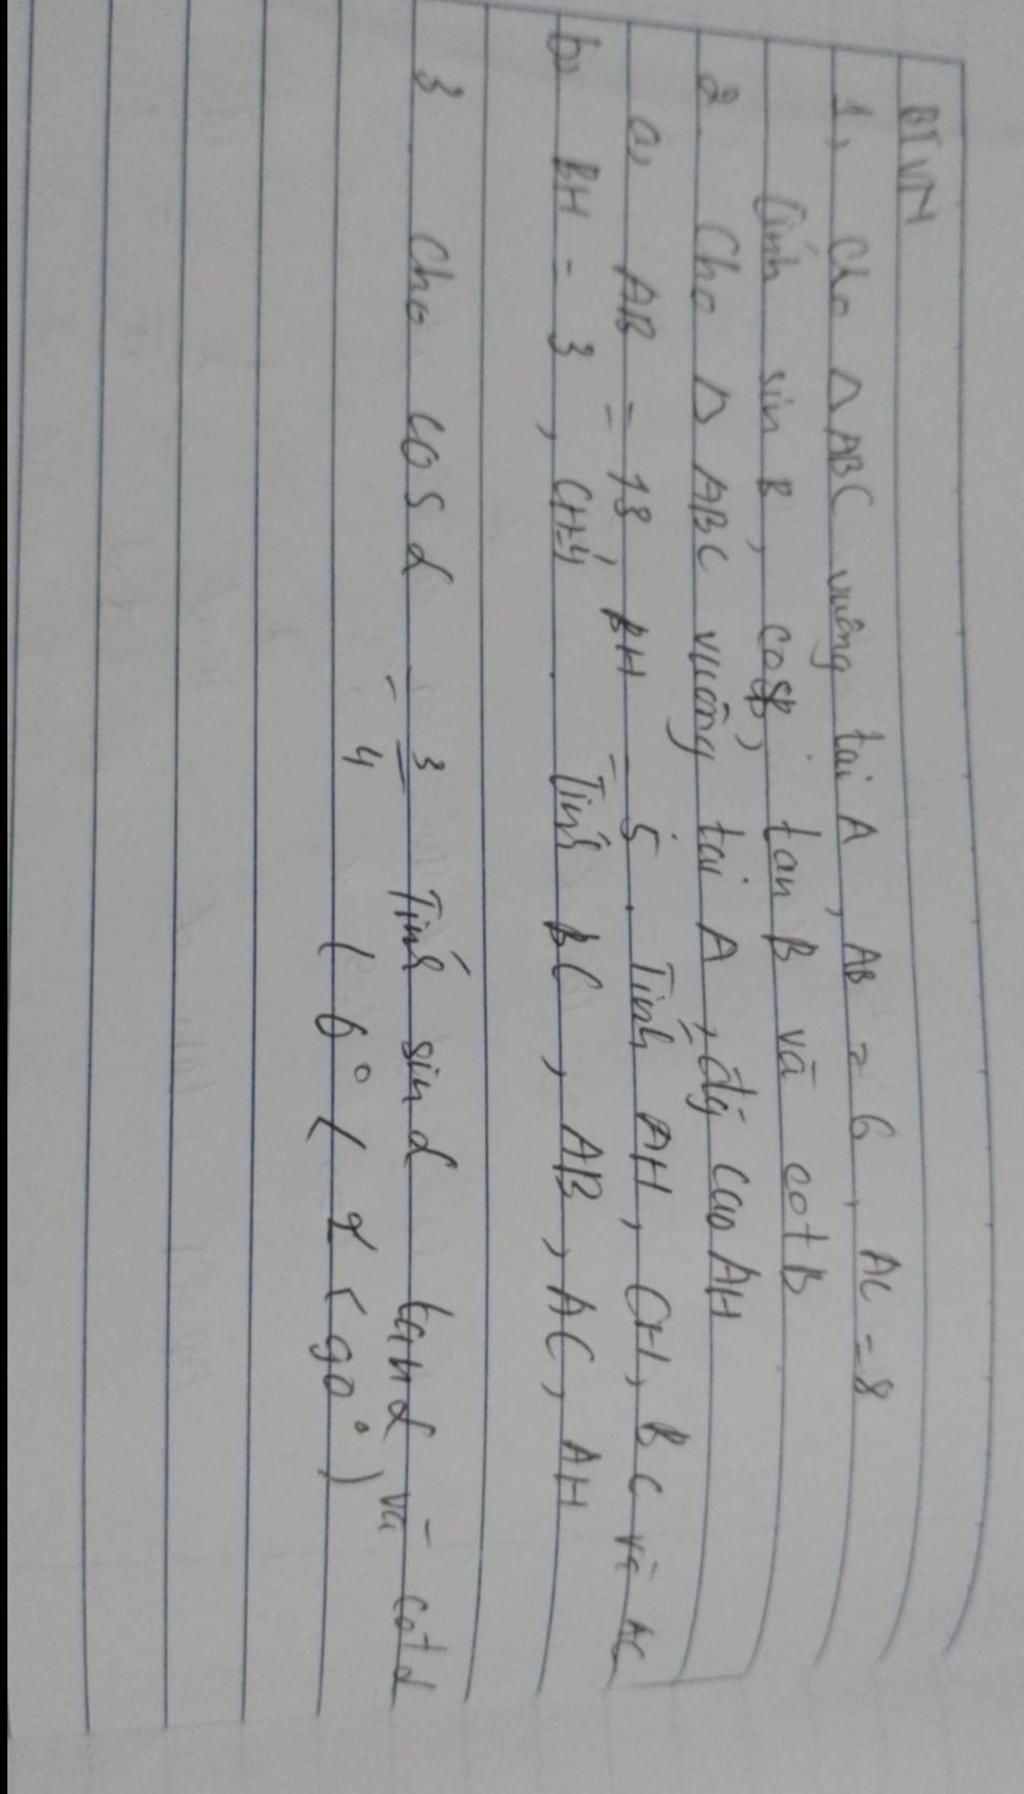 BTVN
1, Cho Δ ABC vuông tại A, AB = 6, AC = 8
Tính sin B, cosB, tan B và cot B
2. Cho Δ ABC vuông tại A, đg cao AH
a, AB = 13, BH = 5. Tính AH, CH, BC và AC
b, BH = 3, CH=4. Tính BC, AB, AC, AH
3 Cho cos α = 3/4 Tính sin α tan α và cot α
( 0° < α < 90° )